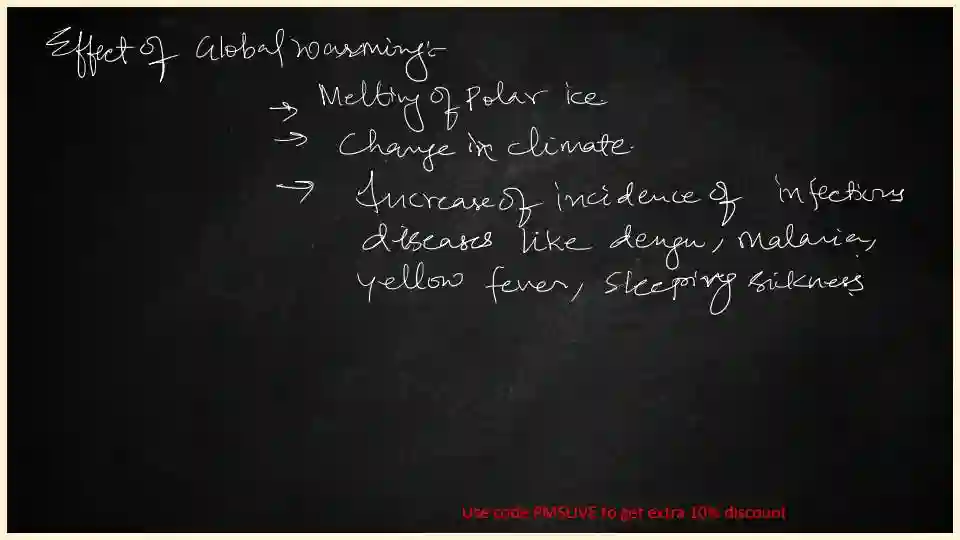 Effect of Global warming:-
→ Melting of Polar ice
→ Change in climate.
→ Increase of incidence of infectious
diseases like dengu, malaria,
yellow fever, sleeping sickness
Use code PMSLIVE to get extra 10% discount